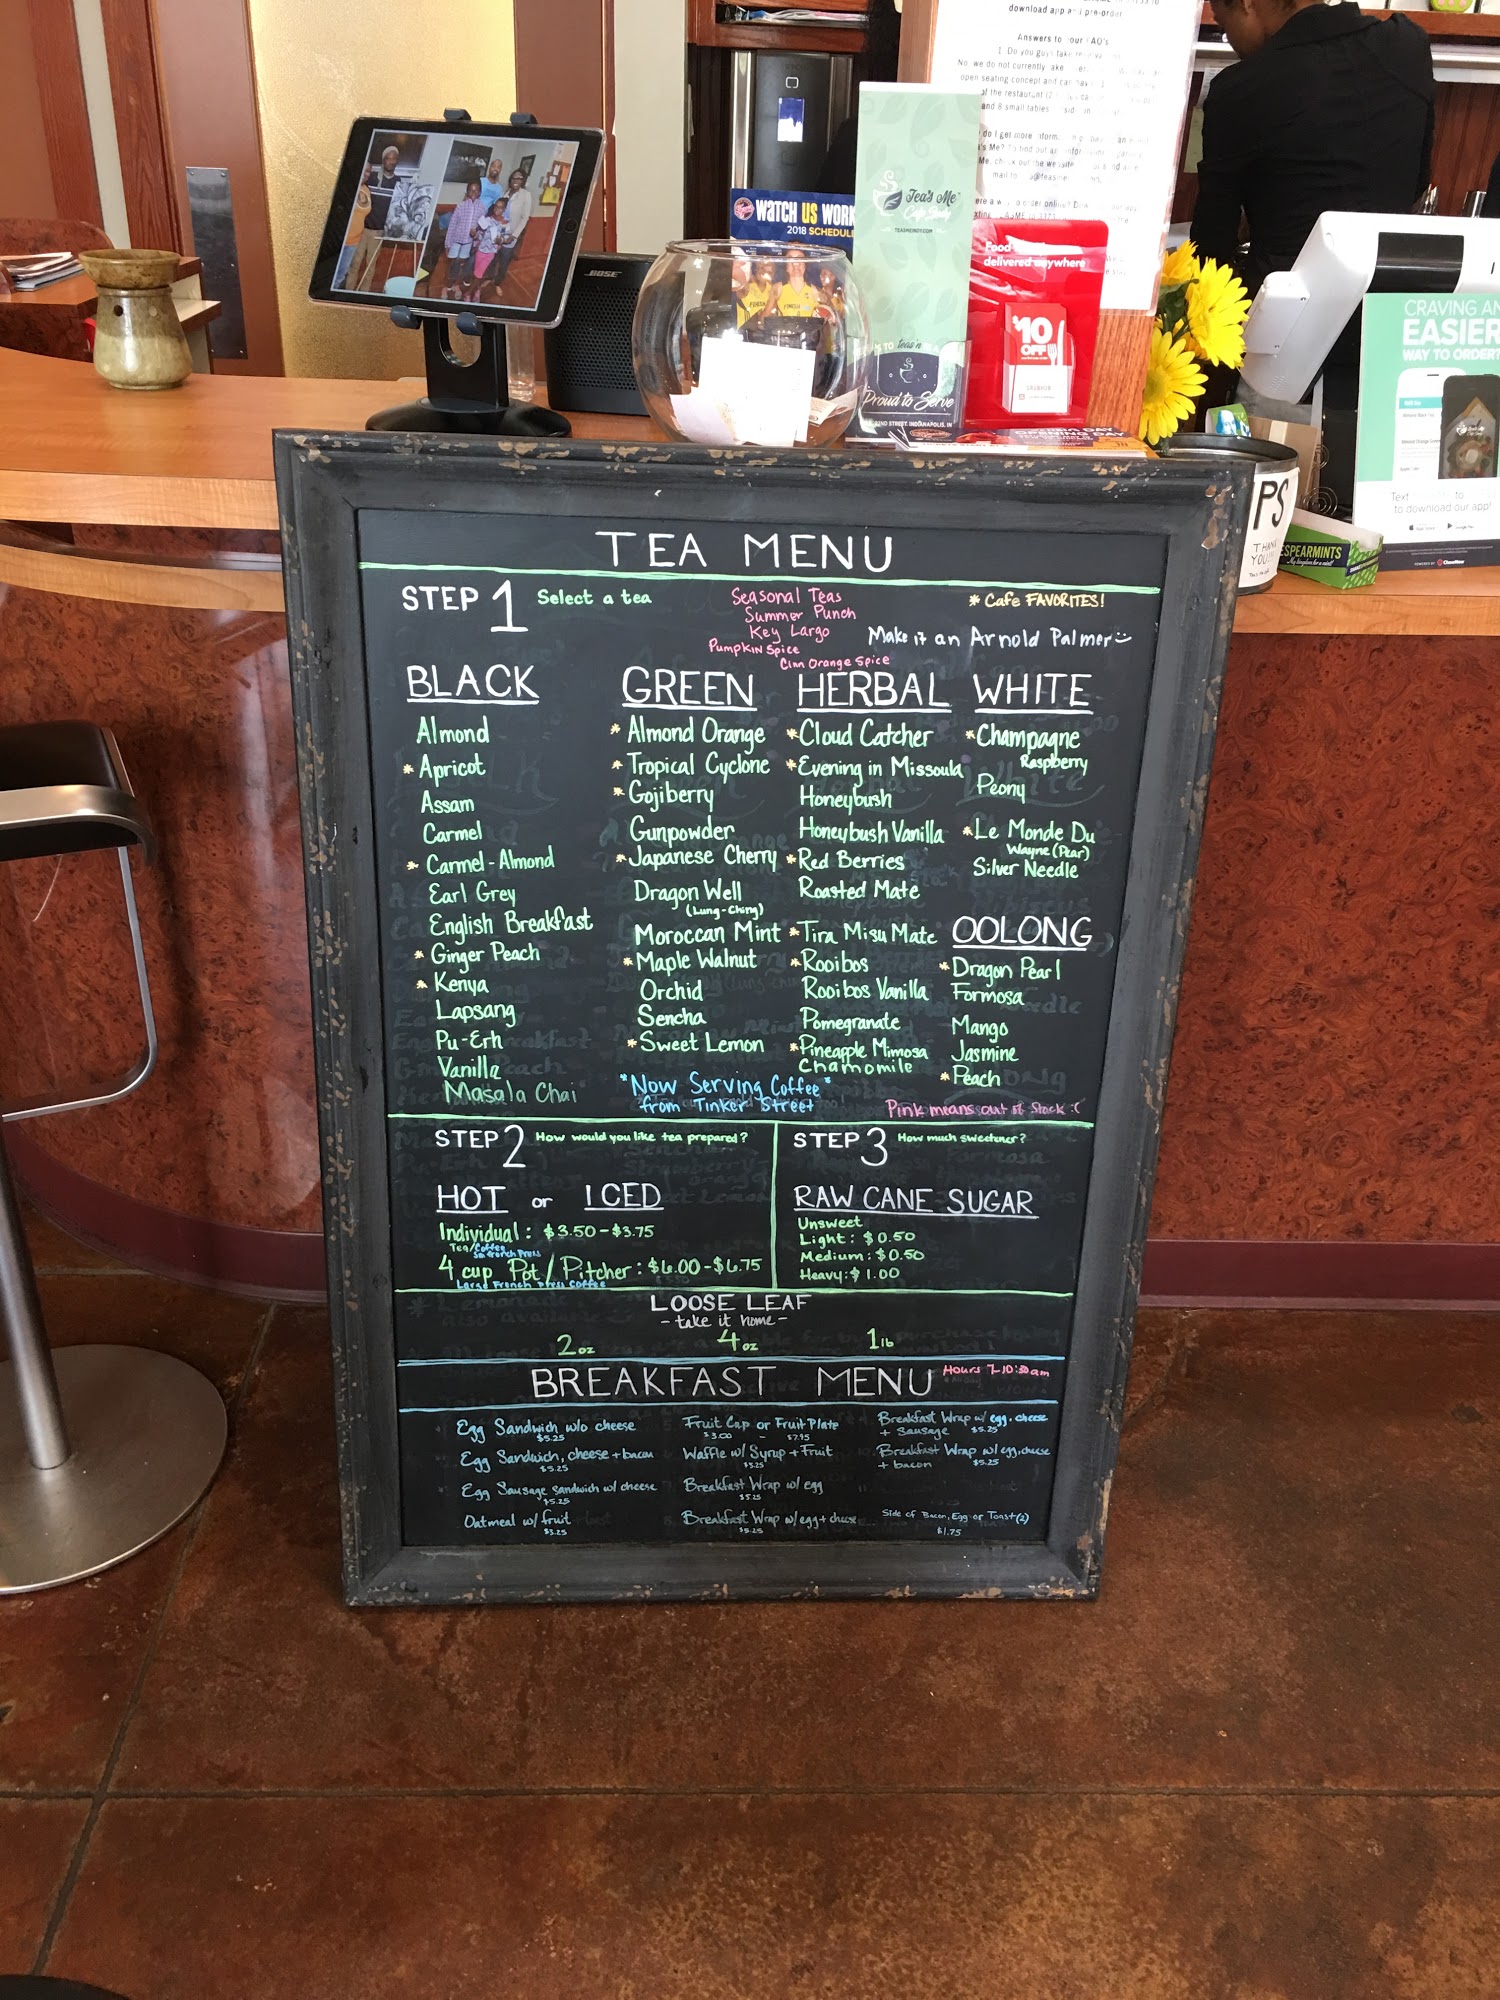 download app and pre-order
Answers to your FAQ's
1. Do you guys take
No, we do not currently take
open seating concept and can
of the restaurant
and 8 small tables
BOSE
WATCH US WORK
2018 SCHEDULE
Tea's Me
Cafe Indy
TEASMEINDY.COM
Proud to Serve
INDIANAPOLIS, IN
Food
delivered anywhere
$10
OFF
GRUBHUB
OPENING DAY
TIPS
THANK
YOU
SPEARMINTS
CRAVING AN
EASIER
WAY TO ORDER?
Text to
to download our app!
TEA MENU
STEP 1 Select a tea
Seasonal Teas
Summer Punch
Key Largo
Pumpkin Spice
Cinn Orange Spice
* Cafe FAVORITES!
Make it an Arnold Palmer
BLACK
Almond
* Apricot
Assam
Carmel
* Carmel-Almond
Earl Grey
English Breakfast
* Ginger Peach
* Kenya
Lapsang
Pu-Erh
Vanilla
Masala Chai
GREEN
* Almond Orange
* Tropical Cyclone
* Gojiberry
Gunpowder
* Japanese Cherry
Dragon Well
(Lung-Ching)
Moroccan Mint
* Maple Walnut
Orchid
Sencha
* Sweet Lemon
HERBAL
* Cloud Catcher
* Evening in Missoula
Honeybush
Honeybush Vanilla
* Red Berries
Roasted Mate
* Tira Misu Mate
* Rooibos
Rooibos Vanilla
Pomegranate
* Pineapple Mimosa
Chamomile
WHITE
* Champagne
Raspberry
Peony
* Le Monde Du
Wayne (Pear)
Silver Needle
OOLONG
* Dragon Pearl
Formosa
Mango
Jasmine
* Peach
"Now Serving Coffee"
from Tinker Street
Pink means out of Stock :(
STEP 2 How would you like tea prepared?
HOT or ICED
Individual: $3.50-$3.75
Tea/Coffee
Sm French Press
4 cup Pot/Pitcher: $6.00-$6.75
Large French Press Coffee
STEP 3 How much sweetener?
RAW CANE SUGAR
Unsweet
Light: $0.50
Medium: $0.50
Heavy: $1.00
LOOSE LEAF
- take it home -
2 oz 4 oz 1 lb
BREAKFAST MENU
Hours 7-10:30am
Egg Sandwich w/o cheese
$5.25
Egg Sandwich, cheese + bacon
$5.25
Egg Sausage Sandwich w/ cheese
$5.25
Oatmeal w/ fruit
$3.25
Fruit Cup or Fruit Plate
$3.00 - $7.95
Waffle w/ Syrup + Fruit
$3.25
Breakfast Wrap w/ egg
$5.25
Breakfast Wrap w/ egg + cheese
$5.25
Breakfast Wrap w/ egg, cheese
+ Sausage $5.25
Breakfast Wrap w/ egg, cheese
+ bacon $5.25
Side of Bacon, Egg or Toast (2)
$1.75